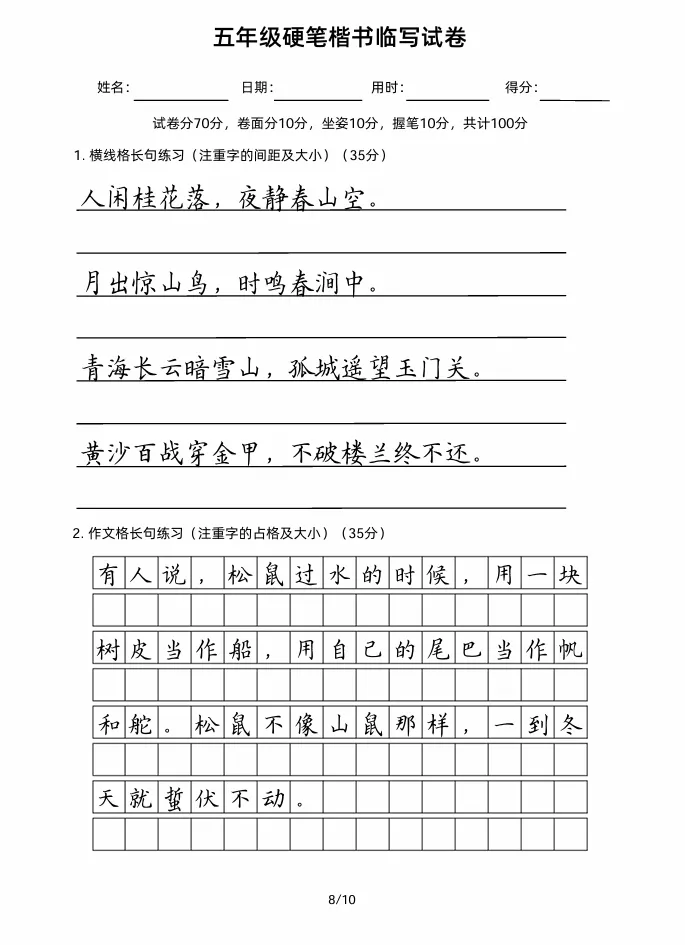 五年级硬笔楷书临写试卷
姓名： 日期： 用时： 得分：
试卷分70分，卷面分10分，坐姿10分，握笔10分，共计100分
1. 横线格长句练习（注重字的间距及大小）（35分）
人闲桂花落，夜静春山空。
月出惊山鸟，时鸣春涧中。
青海长云暗雪山，孤城遥望玉门关。
黄沙百战穿金甲，不破楼兰终不还。
2. 作文格长句练习（注重字的占格及大小）（35分）
有人说，松鼠过水的时候，用一块
树皮当作船，用自己的尾巴当作帆
和舵。松鼠不像山鼠那样，一到冬
天就蛰伏不动。
8/10